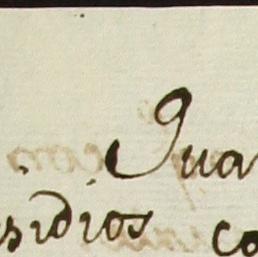 Qua
sidios co